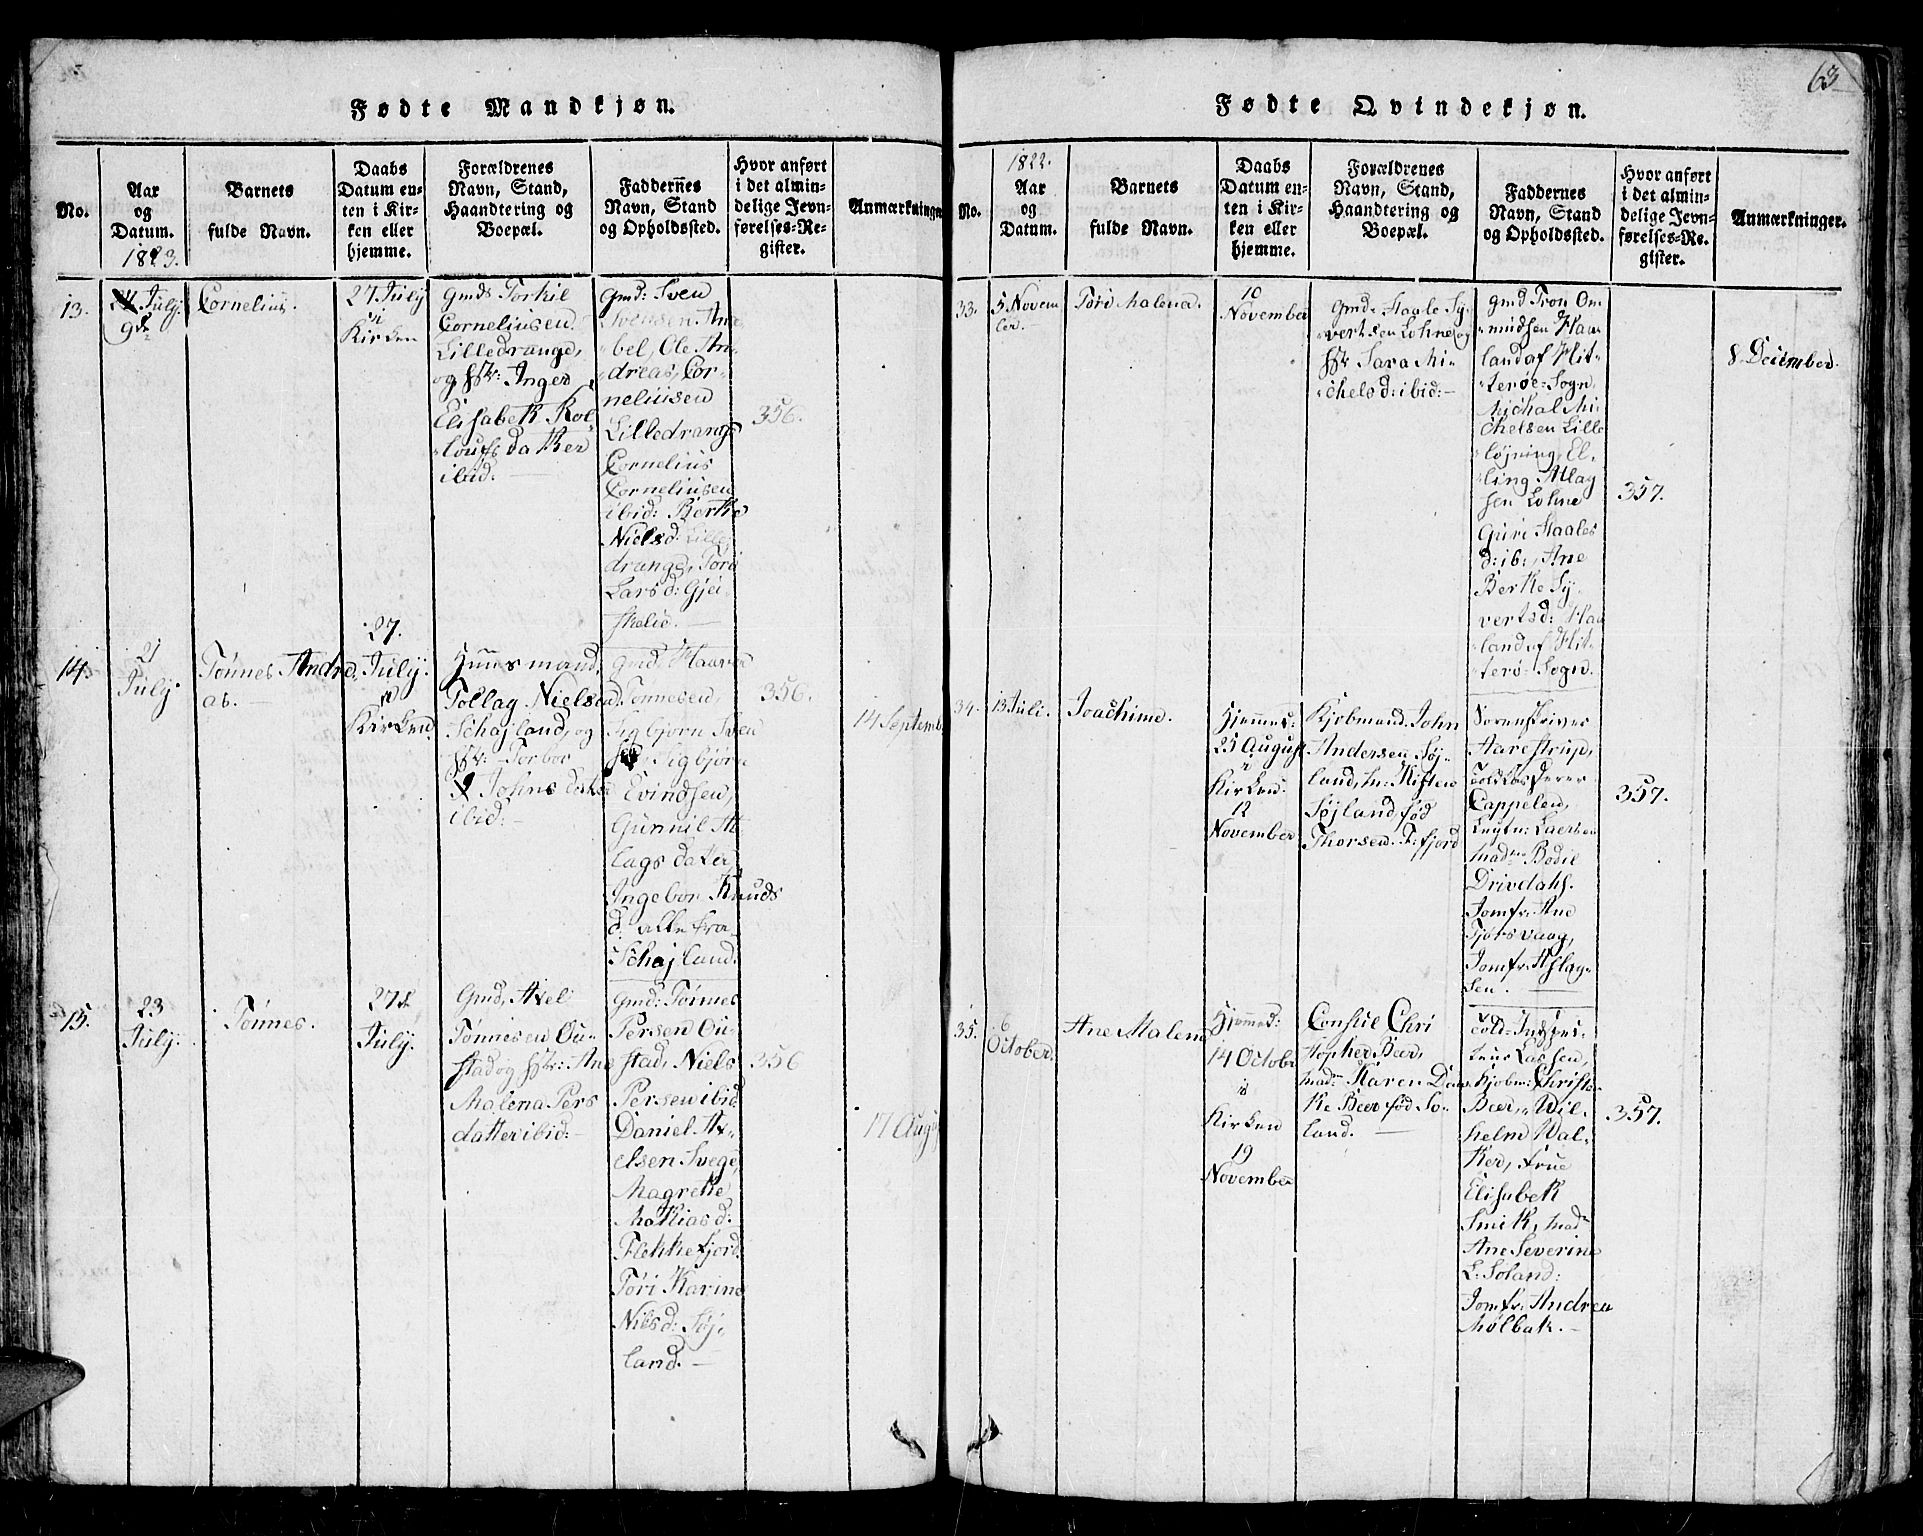 63
Fødte Mandkjøn.
No.
Aar
og
Datum.
1823.
Barnets
fulde Navn.
Daabs
Datum en-
ten i Kir-
ken eller
hjemme.
Forældrenes
Navn, Stand,
Haandtering og
Boepæl.
Faddernes
Navn, Stand
og Opholdssted.
Hvor anført
i det almin-
delige Jevn-
førelses-Re-
gister.
Anmærkninger
13.
July
9de
Cornelius.
27 July
i
Kirken
gmd Torkil
Corneliusen
Lilledrange,
og Hstr: Inger
Elisabeth Rol-
loufs datter
ibid:
gmd: Sven
Svensen Ana-
bel, Ole An-
dreas Cor-
neliusen
Lilledrange
Cornelius
Corneliusen
ibid: Berthe
Nielsd: Lille
drange, Tøri
Larsd: Gjei-
skelie.
356.
14.
21
July.
Tønnes Andre
as.
27.
July.
i
Kirken.
Huusmand,
Tollag Nielsen
Schajland, og
Hstr: Torbor
Johns datter
ibid:
gmd: Haavor
Tønnesen,
Sigbjørn Sven
sen, Sigbjørn
Evindsen,
Gunnil At-
lags datter
Ingebor Knuds
d: alle fra
Schajland.
356.
14 Septemb.
15.
23
July.
Tønnes.
27de
July.
Gmd, Axel
Tønnesen Ou-
stad og Hstr: Ane
Malena Pers
datter ibid:
gmd: Tønnes
Persen Ou-
stad, Niels
Persen ibid
Daniel Ax-
elsen Svege,
Magrethe
Mathiasd:
Flekkefjord.
Tøri Karine
Nilsd: Søj-
land.
356
17 Aug
Fødte Qvindekjøn.
No.
1822.
Aar
og
Datum.
Barnets
fulde Navn.
Daabs
Datum en-
ten i Kir-
ken eller
hjemme.
Forældrenes
Navn, Stand,
Haandtering og
Boepæl.
Faddernes
Navn, Stand
og Opholdssted.
Hvor anført
i det almin-
delige Jevn-
førelses-Re-
gister.
Anmærkninger.
33.
5 Novem
ber.
Tøri Malena.
10
November
gmd: Staale Sy-
vertsen Lohne og
Hstr Sara Mi-
chelsd: ibid:
gmd Tron Om
mundsen Haa-
land af Hit-
terøe-Sogn,
Michal Mi-
chelsen Lille
løjning, El-
ling Atlag
sen Lohne
Guri Staales
d: ib:, Ane
Berthe Sy-
vertsd: Haa
land af Hit-
terø-Sogn.
357.
8 December.
34.
13 Juli.
Joachime.
Hjemmed:
25 August
i
Kirken:
12
November
Kjøbmand John
Andersen Søj-
land, m: Kisten
Søjland, fød
Thorsen. F:fjord
Sorenskriver
Aarestrup,
Cappelen,
Leutn: Laersen
Madme Bodil
Drivdahl.
Jomfr: Ane
Tjørsvaag,
Jomfr: Aslag-
sen.
357.
35.
6
October.
Ane Malena
Hjemmed:
14 October
i
Kirken
19
November
Consul Chri
stopher Beer,
Madm: Karen Dor
the Beer fød So-
land.
told-Inspec-
teur Lassen,
Kjøbm: Christo-
Beer, Wil-
helm Wal-
ker, frue
Elisabeth
Smith, Madm
Ane Severine
L: Soland:
Jomfr: Andrea
Mølbak.
357.